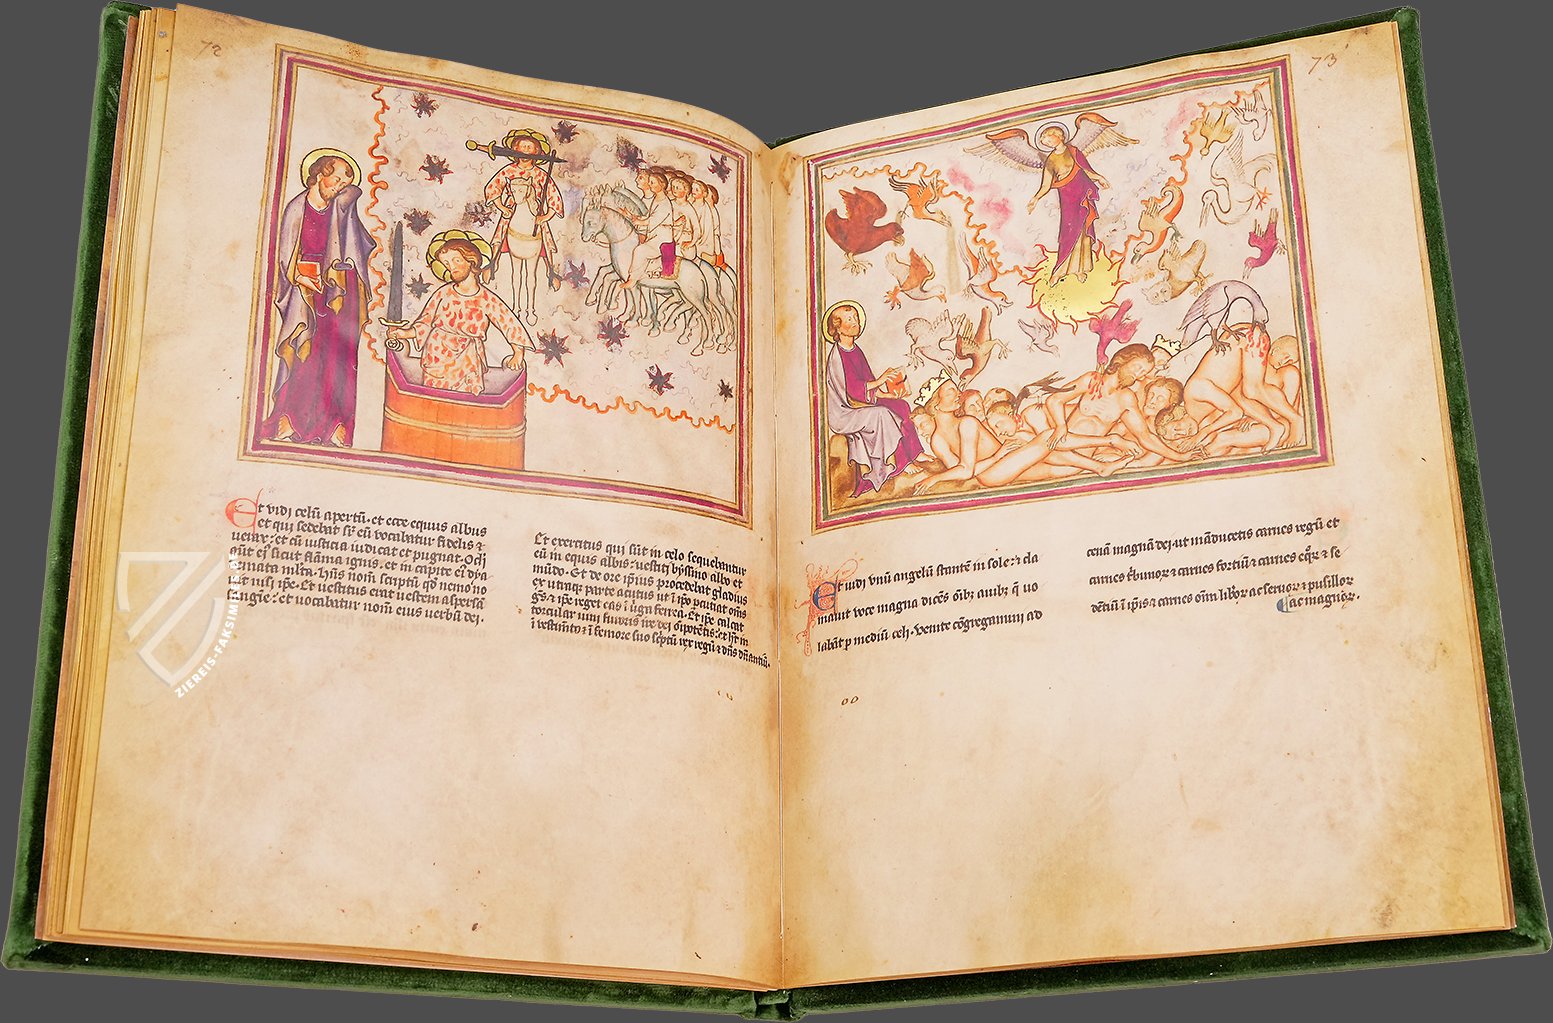 72
Et vidi celū apertū · et ecce equus albus
et qui sedebat sr̄ eū vocabatur fidelis ⁊
verax : et cū iusticia iudicat et pugnat · Ocli
aūt eỹ sicut flāma ignis · et in capite eī dya
demata mlta · Hn̄s nom̄ scriptū qd̄ nemo no
uit nisi ip̄e · Et vestitus erat vestem aspersā
sangīe : et vocabatur nom̄ eius verbū dei ·
Et exercitus qui sūt in celo sequebantur
eū in equis albis : vestiti byssino albo et
mūdo · Et de ore ip̄ius procedebat gladius
ex utraqꝫ parte acutus ut ī ip̄o pcutiat om̄s
gēs ⁊ ip̄e reget eas ī uga ferrea · Et ip̄e calcat
torcular uini furoris ire dei oīpotētis : et h̄t in
ī vestimēto ⁊ ī femore suo sc̄ptū rex regū ⁊ dn̄s dn̄antiū ·
73
Et vidi vnū angelū stantē in sole : ⁊ cla
mauit voce magna dicēs oīb; auib; q̄ vo
labāt p mediū celi · Venite cōgregamini ad
cenā magnā dei · ut māducetis carnes regū et
carnes tͥbunor ⁊ carnes fortiū ⁊ carnes eq̄r ⁊ se
dētiū ī ip̄is ⁊ carnes om̄ liƀor ac seruor ⁊ pusillor
ac magnor ·
ZIEREIS-FAKSIMILE.DE